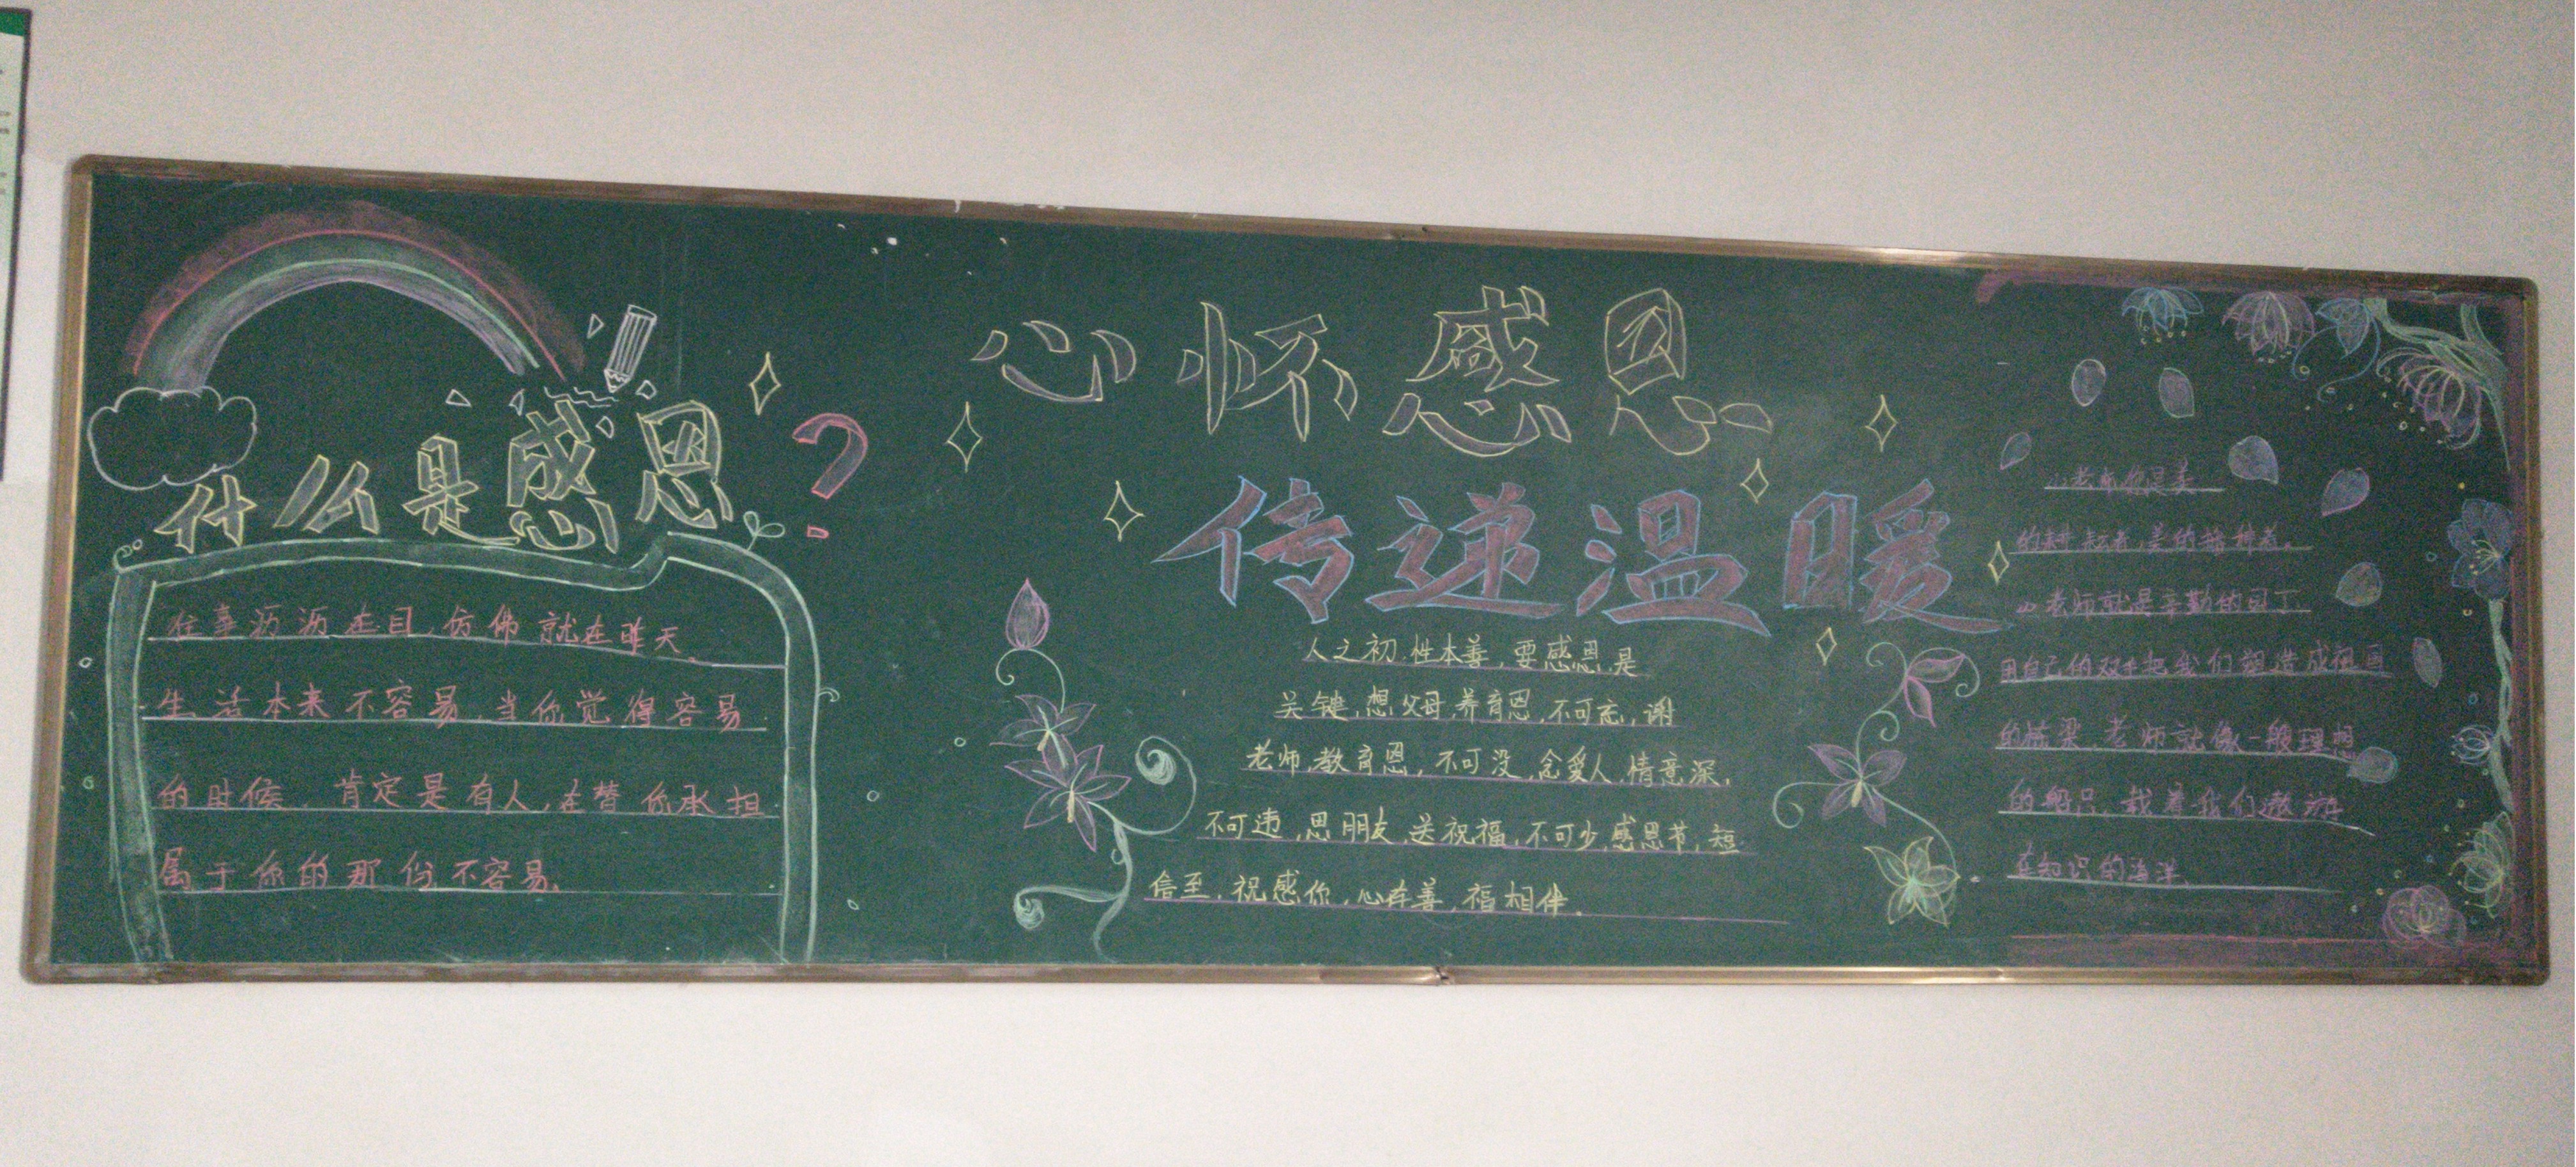 什么是感恩?
往事沥沥在目,仿佛就在昨天。
生活本来不容易,当你觉得容易
的时候,肯定是有人,在替你承担
属于你的那份不容易。
心怀感恩
传递温暖
人之初,性本善,要感恩,是
关键,想父母,养育恩,不可忘,谢
老师,教育恩,不可没,念爱人,情意深,
不可违,思朋友,送祝福,不可少,感恩节,短
信至,祝感你,心存善,福相伴。
老师您是美
的耕耘者,美的播种者。
老师就是辛勤的园丁
用自己的双手把我们塑造成祖国
的栋梁,老师就像一艘理想
的船只,载着我们遨游
在知识的海洋。